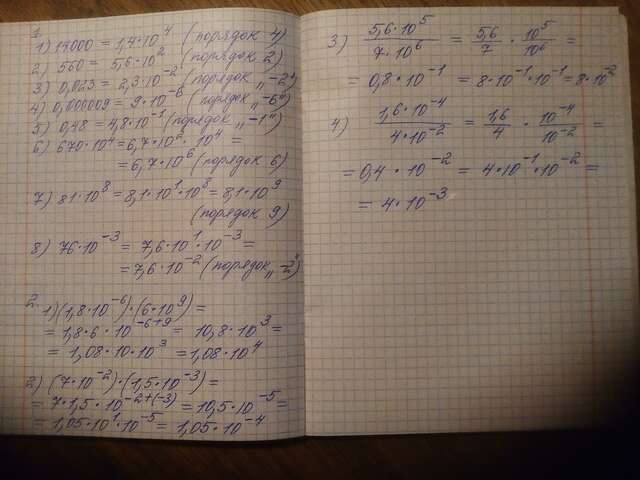 1.
1) 14000 = 1,4·10⁴ (порядок 4)
2) 560 = 5,6·10² (порядок 2)
3) 0,023 = 2,3·10⁻² (порядок „-2")
4) 0,000009 = 9·10⁻⁶ (порядок „-6")
5) 0,48 = 4,8·10⁻¹ (порядок „-1")
6) 670·10⁴ = 6,7·10²·10⁴ =
= 6,7·10⁶ (порядок 6)
7) 81·10⁸ = 8,1·10¹·10⁸ = 8,1·10⁹
(порядок 9)
8) 76·10⁻³ = 7,6·10¹·10⁻³ =
= 7,6·10⁻² (порядок „-2")
2.
1) (1,8·10⁻⁶)·(6·10⁹) =
= 1,8·6·10⁻⁶⁺⁹ = 10,8·10³ =
= 1,08·10·10³ = 1,08·10⁴
2) (7·10⁻²)·(1,5·10⁻³) =
= 7·1,5·10⁻²⁺⁽⁻³⁾ = 10,5·10⁻⁵ =
= 1,05·10¹·10⁻⁵ = 1,05·10⁻⁴
3) 5,6·10⁵/7·10⁶ = 5,6/7 · 10⁵/10⁶ =
= 0,8·10⁻¹ = 8·10⁻¹·10⁻¹ = 8·10⁻²
4) 1,6·10⁻⁴/4·10⁻² = 1,6/4 · 10⁻⁴/10⁻² =
= 0,4·10⁻² = 4·10⁻¹·10⁻² =
= 4·10⁻³